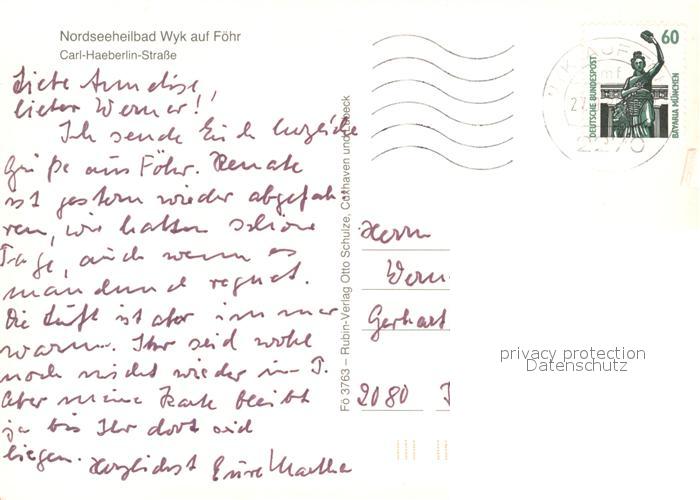 Nordseeheilbad Wyk auf Föhr
Carl-Haeberlin-Straße
Liebe Anneliese,
lieber Werner!
Ich sende Euch herzliche
Grüße aus Föhr. Renate
ist gestern wieder abgefah-
ren, wir hatten schöne
Tage, auch wenn es
manchmal regnet.
Die Luft ist aber immer
warm. Ihr seid wohl
noch nicht wieder in T.
Aber meine Karte bleibt
ja bis Ihr dort seid
liegen. Herzlichst Eure Martha
Fö 3763 – Rubin-Verlag Otto Schulze, Cuxhaven und Lübeck
60
DEUTSCHE BUNDESPOST
BAVARIA MÜNCHEN
2270
Herrn
Wern
Gerhart
2080
privacy protection
Datenschutz